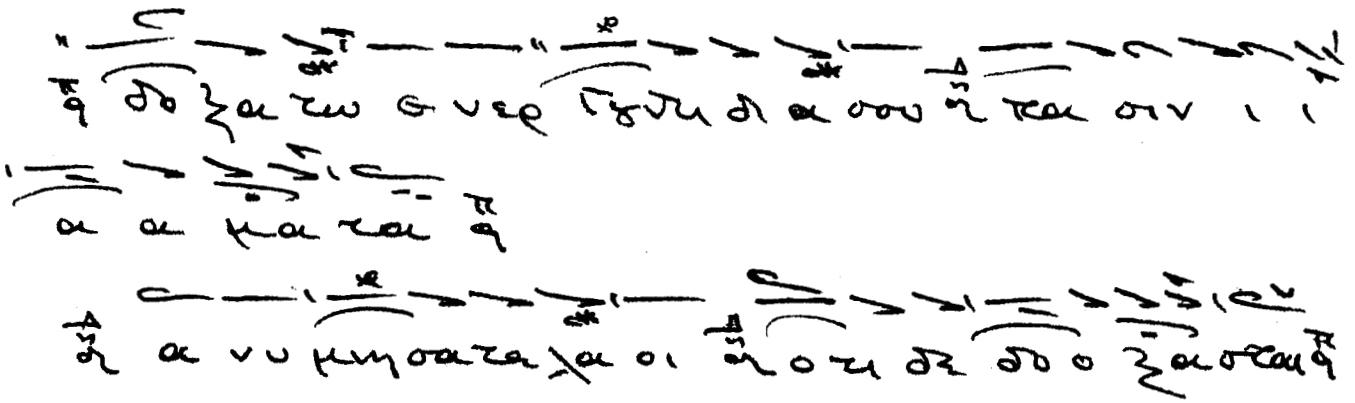 δο ξα τω ε νερ γουντι δι α σου πα σιν ι ι
α α μα τα
α νυ μνησατα λα οι ο τι δε δο ο ξα σται